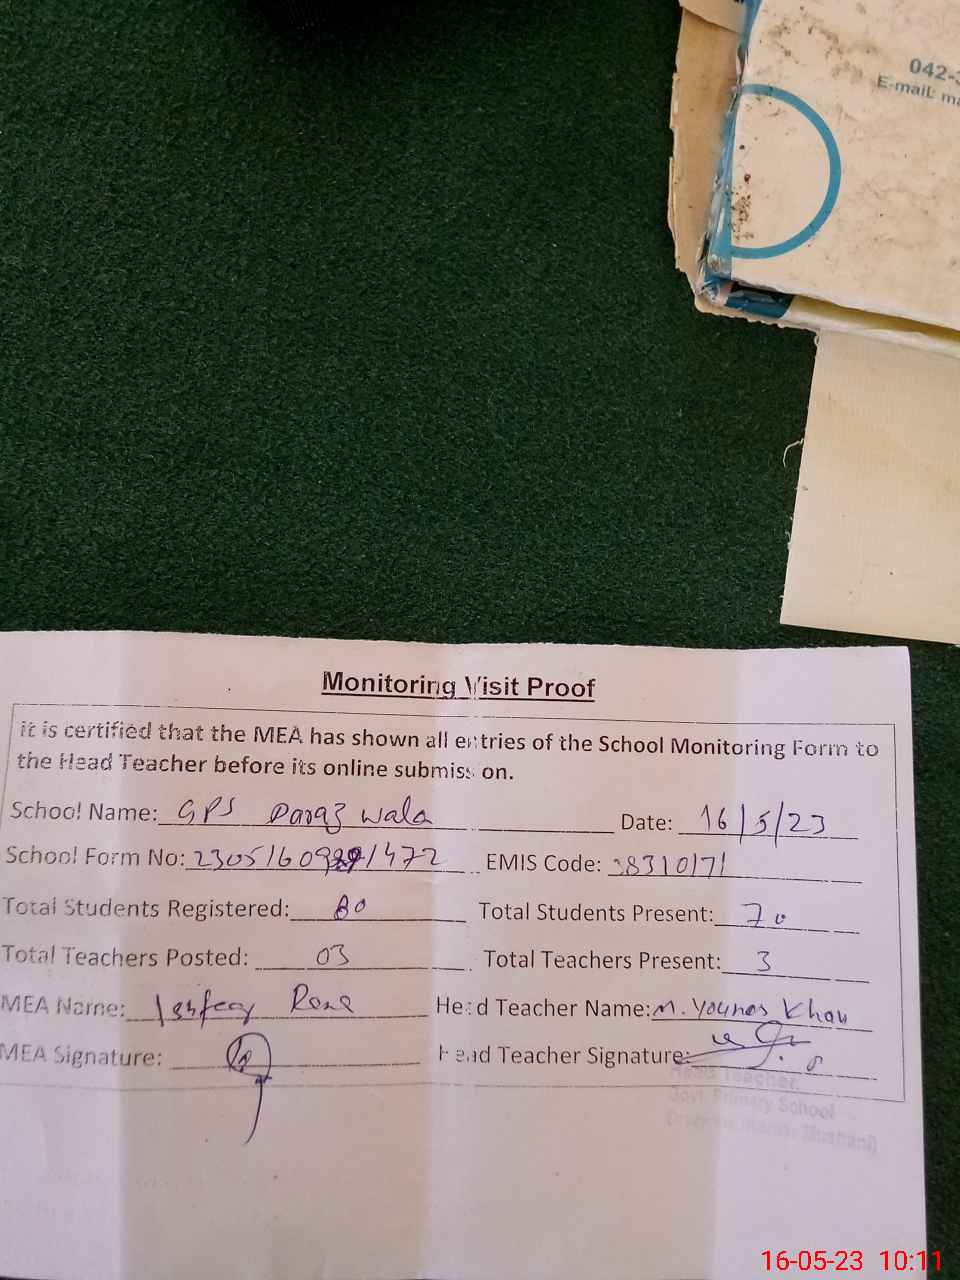 042-3
E-mail: ma
Monitoring Visit Proof
it is certified that the MEA has shown all entries of the School Monitoring Form to
the Head Teacher before its online submission.
School Name: GPS Daraz wala Date: 16/5/23
School Form No: EMIS Code: 38310171
Total Students Registered: 80 Total Students Present: 70
Total Teachers Posted: 03 Total Teachers Present: 3
MEA Name: Head Teacher Name: M. Younas Khan
MEA Signature: Head Teacher Signature:
Head Teacher,
Govt. Primary School
16-05-23 10:11